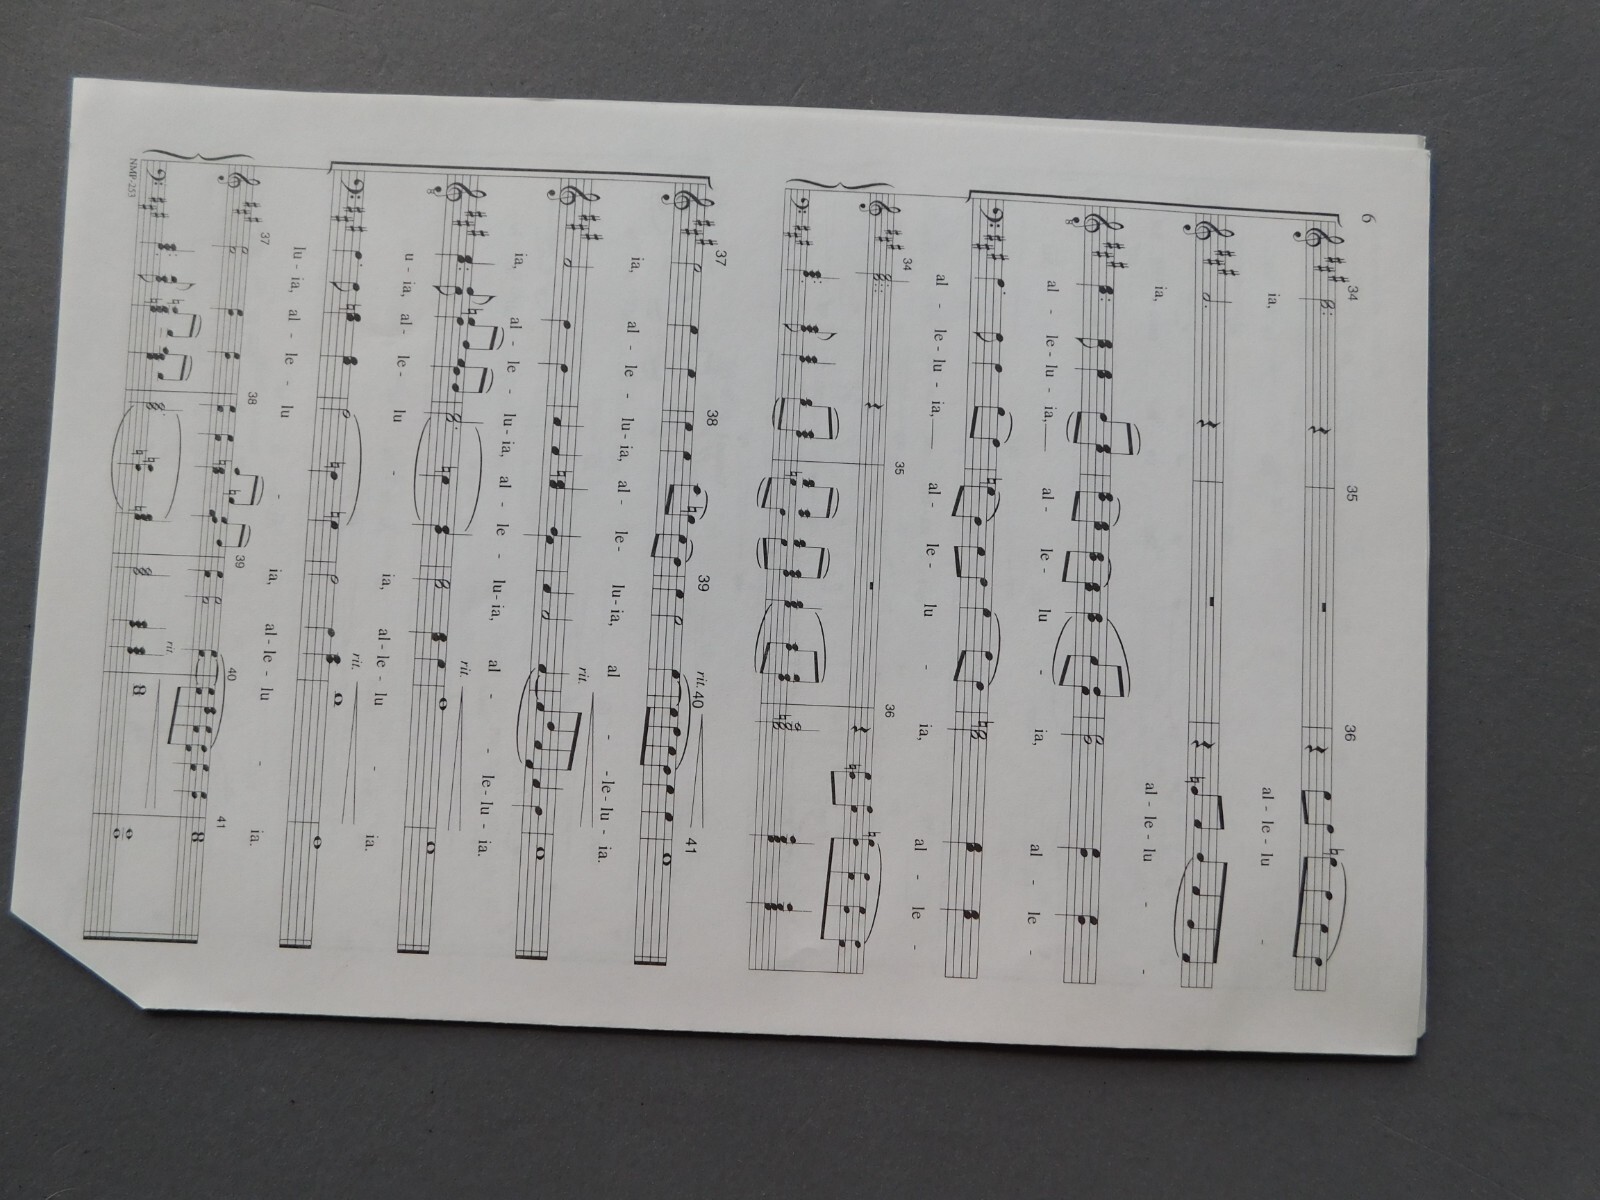 6
34 35 36
ia, al - le - lu -
ia, al - le - lu - -
al - le - lu - ia, al - le - lu - ia, al - le -
al - le - lu - ia, al - le - lu - ia, al - le -
34 35 36
37 38 39 rit. 40 41
ia, al - le - lu - ia, al - le - lu - ia, al - - le - lu - ia.
rit.
ia, al - le - lu - ia, al - le - lu - ia, al - - le - lu - ia.
rit.
u - ia, al - le - lu - ia, al - le - lu - ia.
rit.
lu - ia, al - le - lu - ia, al - le - lu - ia.
37 38 39 40 41
rit.
NMP-253